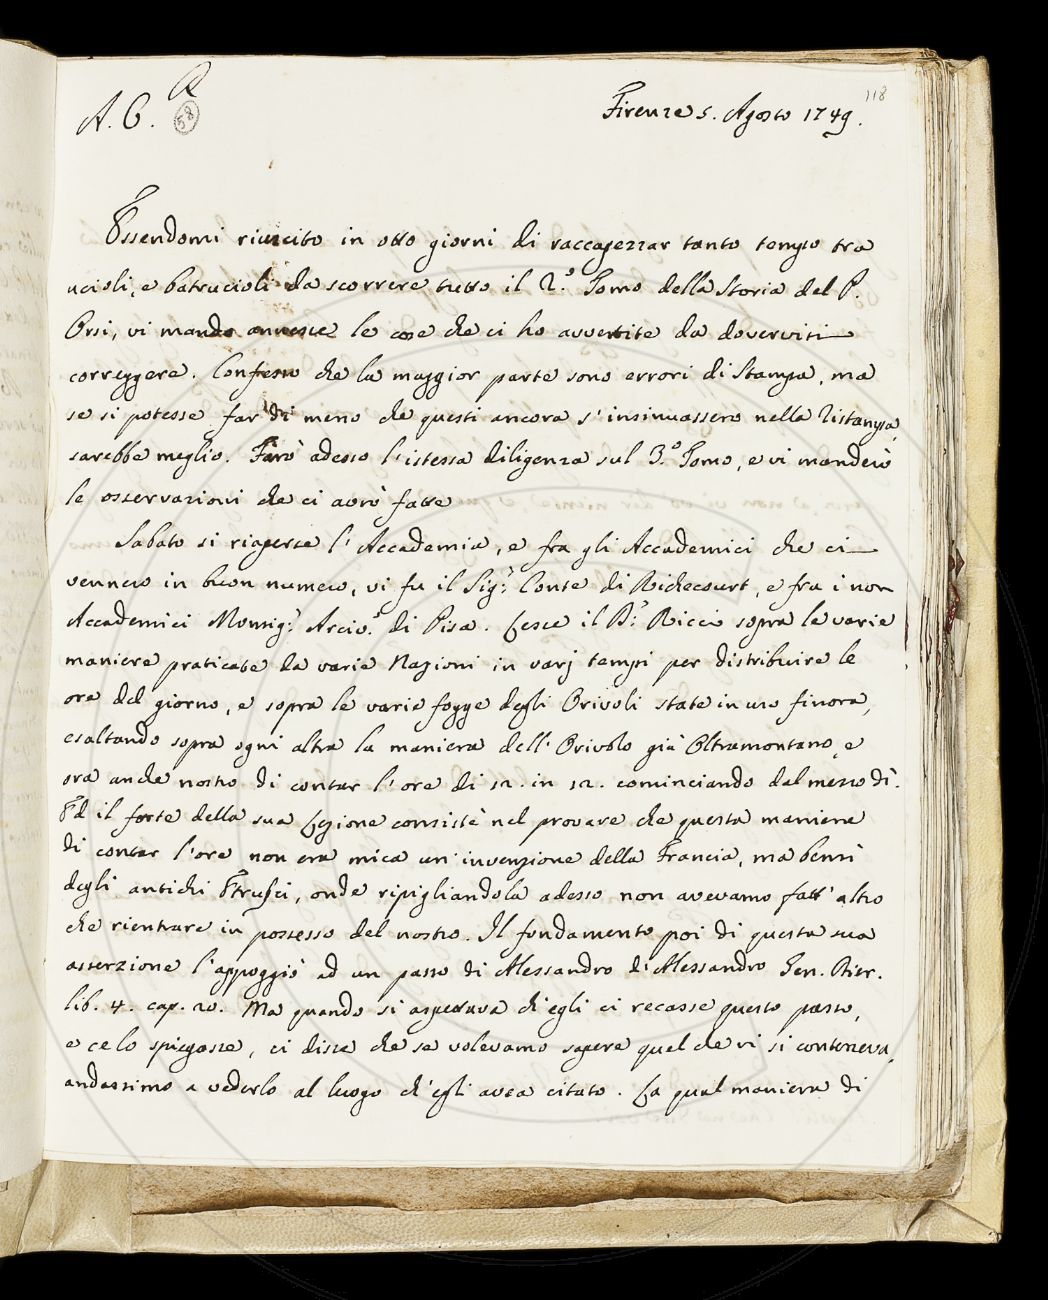 R
A. C. 58
118
Firenze 5. Agosto 1749.
Essendomi riuscito in otto giorni di raccapezzar tanto tempo tra
ucioli, e batrucioli da scorrere tutto il 2.° Tomo della Storia del P.
Orsi, vi mando annesse le cose che ci ho avvertite da doverviti
correggere. Confesso che la maggior parte sono errori di Stampa, ma
se si potesse far di meno che questi ancora s'insinuassero nella ristampa,
sarebbe meglio. Farò adesso l'istessa diligenza sul 3.° Tomo, e vi manderò
le osservazioni che ci avrò fatte
Sabato si riaperse l'Accademia, e fra gli Accademici che ci
vennero in buon numero, vi fu il Sig.r Conte di Richecourt, e fra i non
Accademici Monsig.r Arciv.o di Pisa. Lesse il P. Ricci sopra le varie
maniere praticate da varie Nazioni in varj tempi per distribuire le
ore del giorno, e sopra le varie fogge degli Orivoli state in uso finora,
esaltando sopra ogni altra la maniera dell'Orivolo già Oltramontano, e
ora anche nostro di contar l'ore di 12. in 12. cominciando dal mezzo dì.
Ed il forte della sua Lezione consistè nel provare che questa maniera
di contar l'ore non era mica un'invenzione della Francia, ma bensì
degli antichi Etrusci, onde ripigliandola adesso non avevamo fatt'altro
che rientrare in possesso del nostro. Il fondamento poi di questa sua
asserzione l'appoggiò ad un passo di Alessandro di Alessandro Gen. Dier.
lib. 4. cap. 20. Ma quando si aspettava ch'egli ci recasse questo passo,
e ce lo spiegasse, ci disse che se volevamo sapere quel che vi si conteneva,
andassimo a vederlo al luogo ch'egli avea citato. La qual maniera di